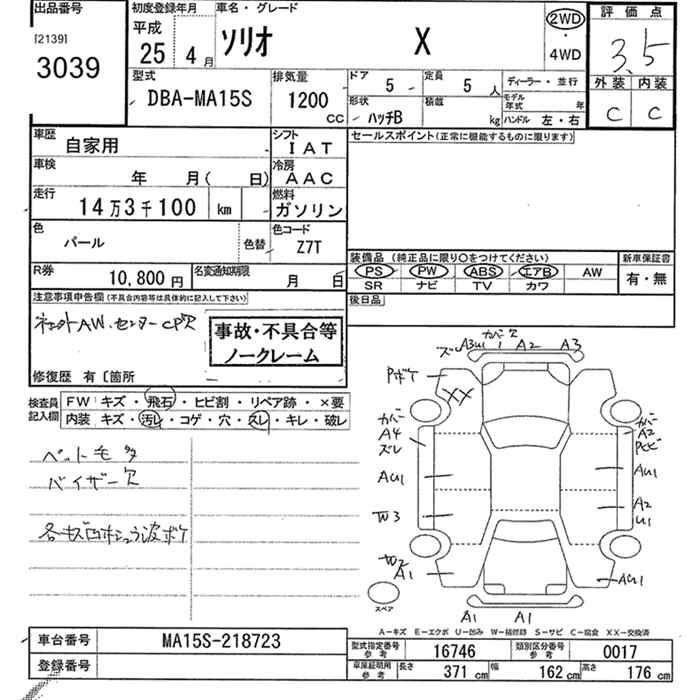 出品番号 初度登録年月 車名・グレード 評価点
[2139] 平成
3039 25年 4月 ソリオ X 2WD・4WD 3.5
型式 排気量 ドア 定員 ディーラー・並行 外装 内装
DBA-MA15S 1200 CC 5 5人 モデル年式 年 C C
形状 ハッチB 積載 kg ハンドル 左・右
車歴 自家用 シフト IAT セールスポイント(正常に機能するものに限ります)
車検 年 月( 日) 冷房 AAC
走行 14万3千100 km 燃料 ガソリン
色 パール 色替 色コード Z7T
装備品(純正品に限り○をつけてください) 新車保証書
PS PW ABS エアB AW 有・無
SR ナビ TV カワ
R券 10,800円 名変通知期限 月 日 後日品
注意事項申告欄(不具合内容等は具体的に記入して下さい)
AW、センターCP欠
事故・不具合等
ノークレーム
修復歴 有〔箇所
検査員記入欄 FW キズ・飛石・ヒビ割・リペア跡・×要
内装 キズ・汚レ・コゲ・穴・スレ・キレ・破レ
ペット毛多
バイザー欠
カバー欠
ズレ A3U1 1 A2 A3
Pボケ XX
カバー A4 ズレ
カバー A2
AU1 AU1
W3 A2 U1
W2 A1 AU1
スペア A1 A1
A-キズ E-エクボ U-凹み W-補修跡 S-サビ C-腐食 XX-交換済
車台番号 MA15S-218723
型式指定番号 参考 16746 類別区分番号 参考 0017
登録番号
車庫証明用 参考 長さ 371 cm 幅 162 cm 高さ 176 cm